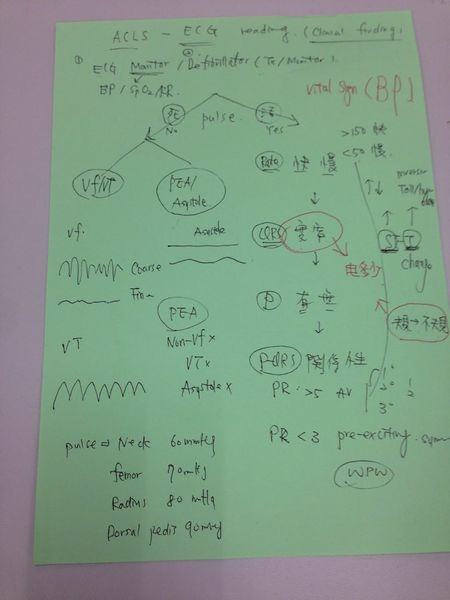 ACLS - ECG reading. (Clinical finding)
① ECG Monitor / Defibrillator (Tx / Monitor).
BP / SpO2 / RR
Vital sign (BP)
死 pulse. 活
No Yes
>150 快
<50 慢
Rate 快 慢
Vf/VT
PEA/
Asystole
Vf.
Asystole
QRS 寬 窄
ST-T
change
Coarse
Fine
電多少
P 有 無
PEA
Non-Vf x
VT x
Asystole x
VT
P-QRS 關係性
PR >5 AV
1°
2° 1
2
3°
PR <3 pre-exciting
WPW
pulse ⇒ Neck 60mmHg
femor 70mmHg
Radius 80 mmHg
Dorsal pedis 90mmHg